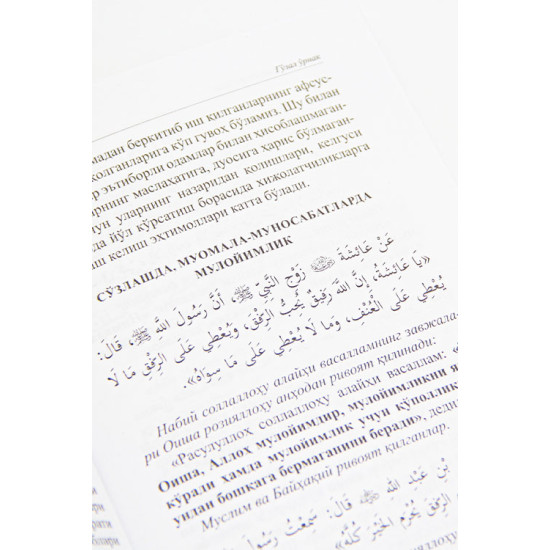 Гўзал ўрнак
мадан беркитиб иш қилганларнинг афсус-
қолганларига кўп гувоҳ бўламиз. Шу билан
р эътиборли одамлар билан ҳисоблашмаган-
арнинг маслаҳатига, дуосига ҳарис бўлмаган-
ун уларнинг назаридан қолишлари, келгуси
да йўл кўрсатиш борасида хижолатчиликларга
ш келиш эҳтимоллари катта бўлади.
СЎЗЛАШДА, МУОМАЛА-МУНОСАБАТЛАРДА
МУЛОЙИМЛИК
عَنْ عَائِشَةَ زَوْجِ النَّبِيِّ ﷺ، أَنَّ رَسُولَ اللَّهِ ﷺ، قَالَ:
«يَا عَائِشَةُ، إِنَّ اللَّهَ رَفِيقٌ يُحِبُّ الرِّفْقَ، وَيُعْطِي عَلَى الرِّفْقِ مَا لَا
يُعْطِي عَلَى الْعُنْفِ، وَمَا لَا يُعْطِي عَلَى مَا سِوَاهُ».
Набий соллаллоҳу алайҳи васалламнинг завжала-
ри Оиша розияллоҳу анҳодан ривоят қилинади:
«Расулуллоҳ соллаллоҳу алайҳи васаллам: «
Оиша, Аллоҳ мулойимдир, мулойимликни я
кўради ҳамда мулойимлик учун қўполлик
ундан бошқага бермаганини беради», деди
Муслим ва Байҳақий ривоят қилганлар.
بْنِ عَبْدِ اللَّهِ قَالَ: سَمِعْتُ رَسُولَ
الرِّفْقَ يُحْرَمِ الْخَيْرَ كُلَّهُ»